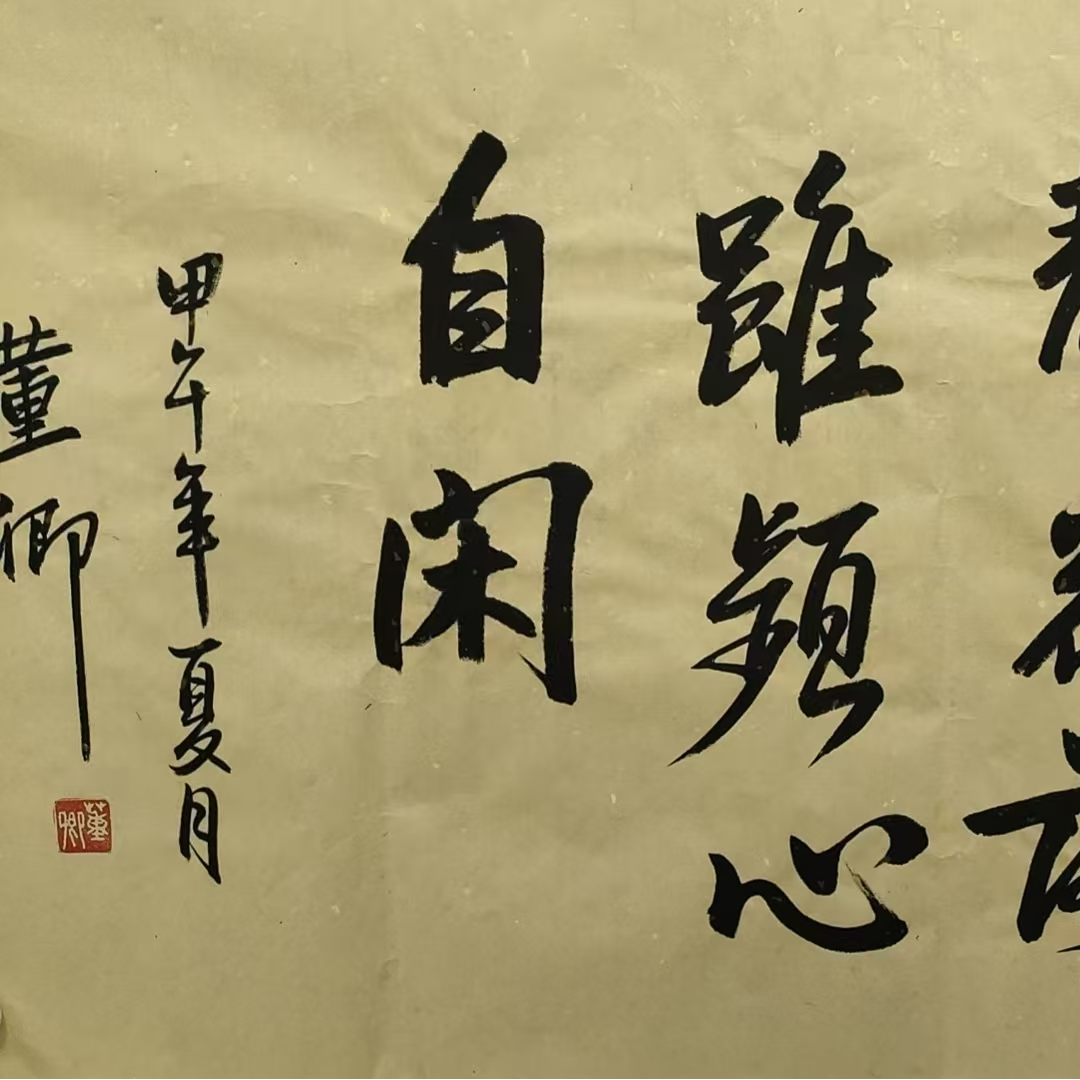 雖頻心
自閑
甲午年夏月
董卿
董卿